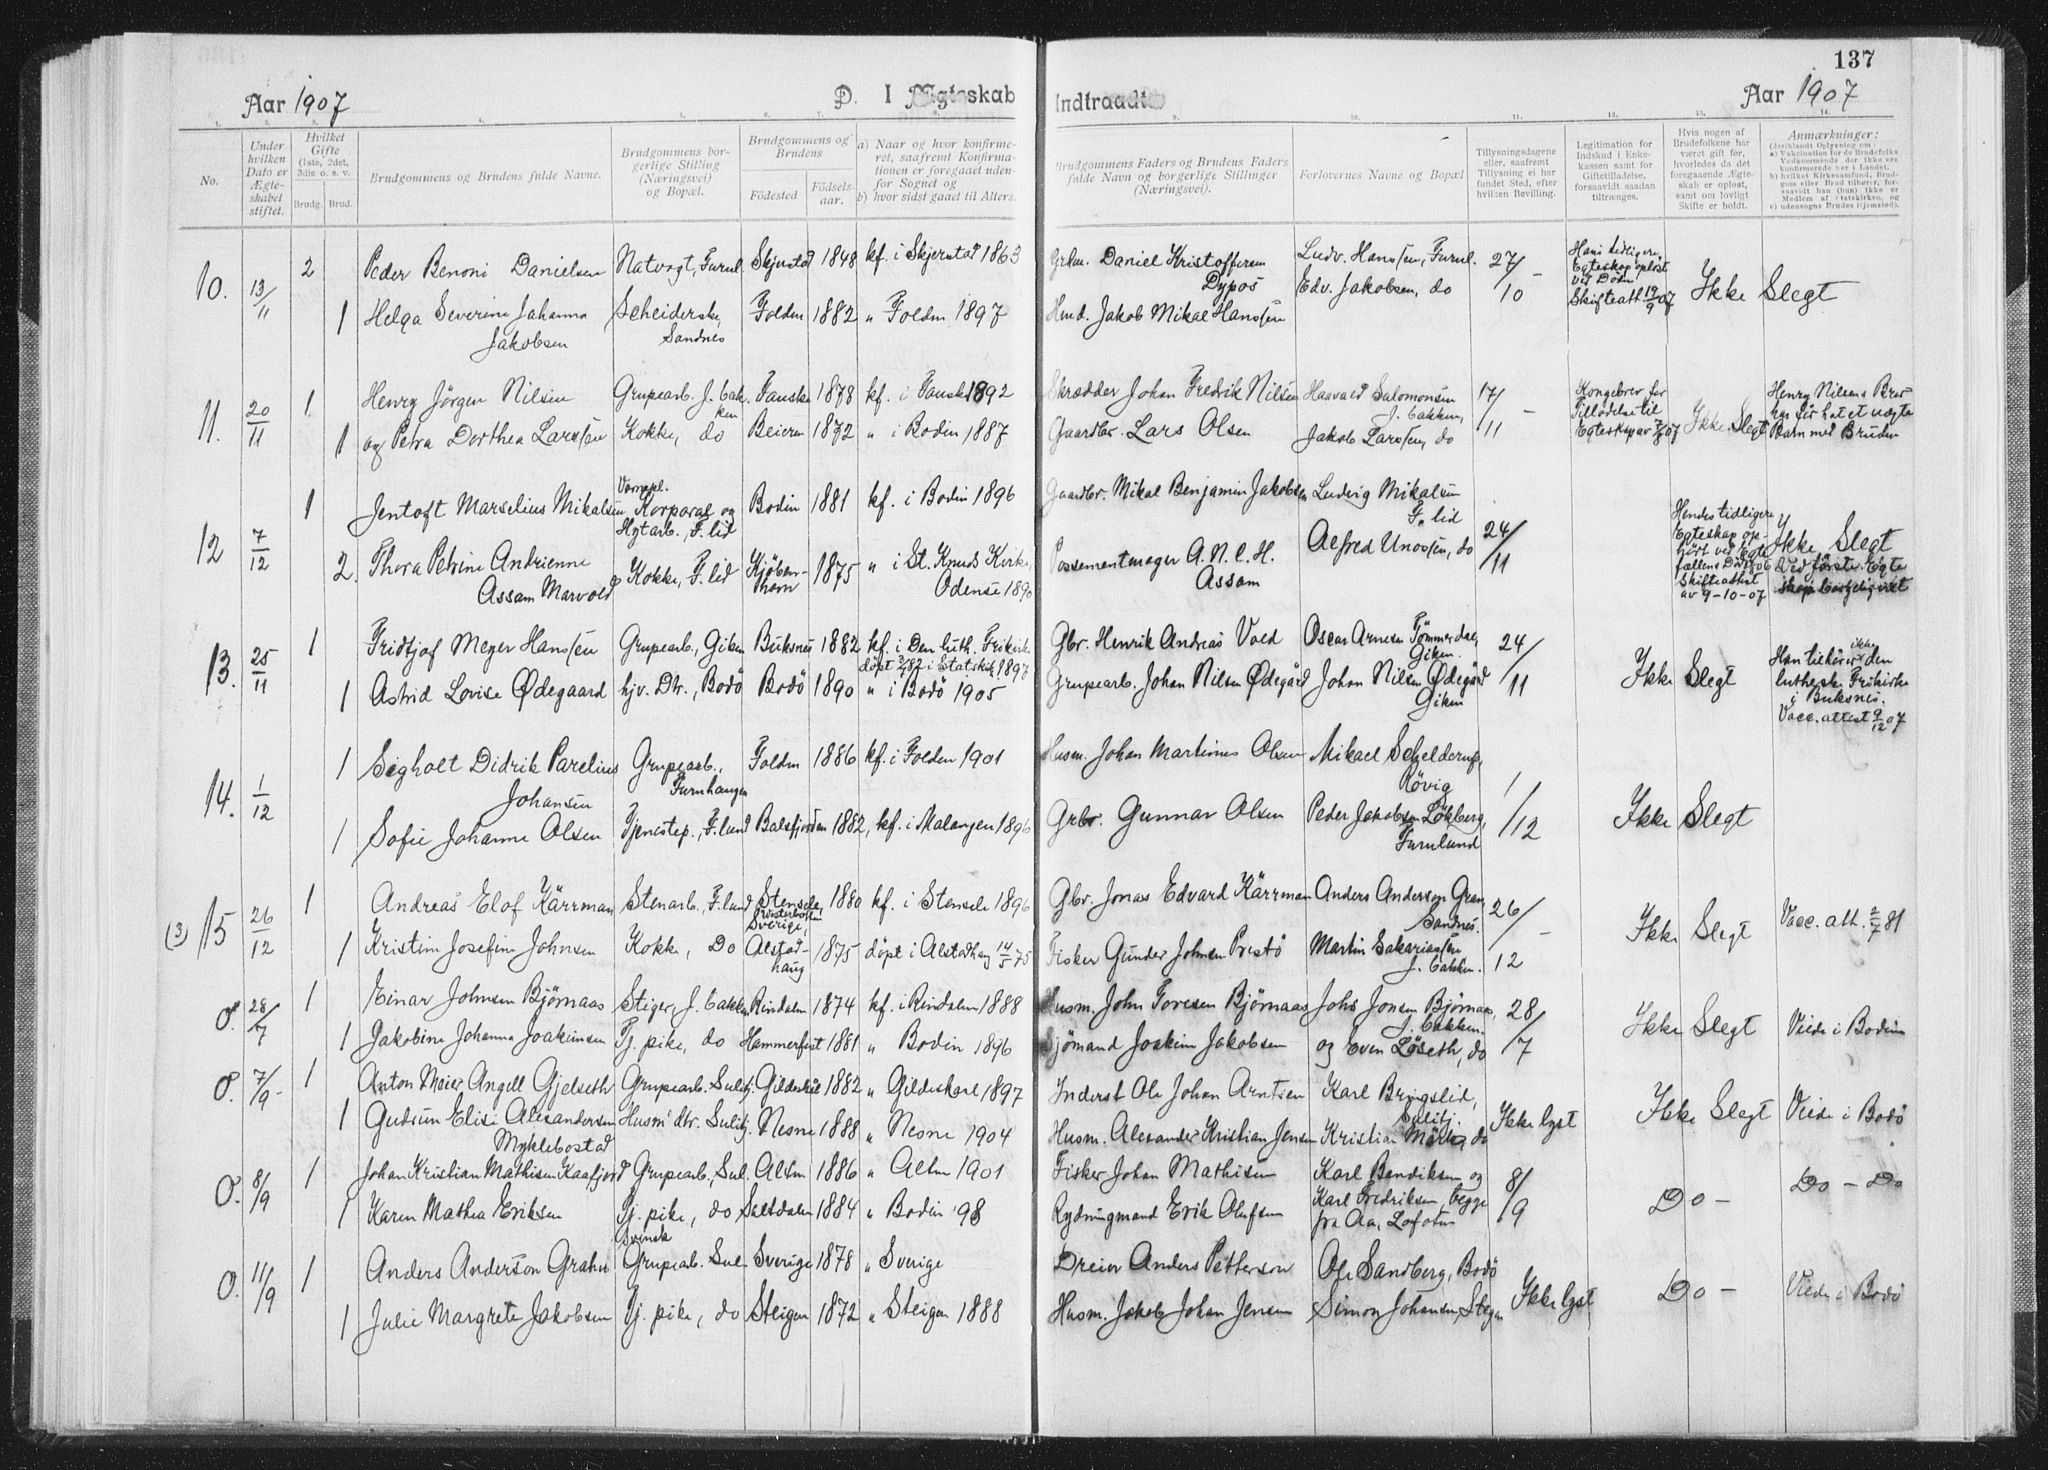 137
Aar 1907
D. I Ægteskab Indtraadte
Aar 1907
1. 2. 3. 4. 5. 6. 7. 9. 10. 11. 12. 13. 14.
No.
Under hvilken Dato er Ægteskabet stiftet.
Hvilket Gifte (1ste, 2det, 3die o. s. v.
Brudg. Brud.
Brudgommens og Brudens fulde Navne.
Brudgommens borgerlige Stilling (Næringsvei) og Bopæl.
Brudgommens og Brudens
Födested
Födselsaar.
a) Naar og hvor konfirmeret, saafremt Konfirmationen er foregaaet udenfor Sognet og
b) hvor sidst gaaet til Alters.
Brudgommens Faders og Brudens Faders fulde Navn og borgerlige Stillinger (Næringsvei).
Forlovernes Navne og Bopæl
Tillysningsdagene eller, saafremt Tillysning ei har fundet Sted, efter hvilken Bevilling.
Legitimation for Indskud i Enkekassen samt for Giftetilladelse, forsaavidt saadan tiltrænges.
Hvis nogen af Brudefolkene har været gift før, hvorledes da det foregaaende Ægteskab er opløst, samt om lovligt Skifte er holdt.
Anmærkninger:
(deriblandt Oplysning om:
a) Vakcination for de Brudefolks Vedkommende der ikke ere konfirmerede her i Landet,
b) hvilket Kirkesamfund, Brudgom eller Brud tilhører, forsaavidt han (hun) ikke er Medlem af Statskirken, og
c) udensogns Brudes Hjemsted).
10. 13/11 2 Peder Benoni Danielsen Natvagt, Furul. Skjerstad 1848 kf. i Skjerstad 1863 Grbr. Daniel Kristoffersen Dypos Ludv. Hanssen, Furul. 27/10 Hans tidligere Egteskap opløst ved Död Skifteatt. 19/9 07 Ikke Slegt
1 Helga Severine Johanna Jakobsen Scheiderske, Sandnes Folden 1882 " Folden 1897 Hmd. Jakob Mikal Hanssen Edv. Jakobsen, do
11. 20/11 1 Henry Jörgen Nilsen Grupearb. J. bakken Fauske 1878 kf. i Fauske 1892 Skrædder Johan Fredrik Nilsen Haavald Salomonsen J. bakken, 17/11 Kongebrev for Tilladelse til Egteskap av 7/9 07 Ikke Slegt Henry Nilsens Bror har før hat et uægte Barn med Bruden
1 og Petra Dorthea Larssen Kokke, do Beieren 1872 " i Bodin 1887 Gaardbr. Lars Olsen Jakob Larssen, do
12 7/12 1 Jentoft Marselius Mikalsen Vernepl. Korporal og Hytarb., F.lid Bodin 1881 kf. i Bodin 1896 Gaardbr. Mikal Benjamin Jakobsen Ludvig Mikalsen F. lid 24/11 Hendes tidligere Egteskap ophört ved Egtefællens Död 1906 Skifteattest av 9-10-07 Ikke Slegt
2. Thora Petrine Andrienne Assam Marvold Kokke, F. lid Kjöbenhavn 1875 " i St. Knuds Kirke, Odense 1890 Possementmager A.N.C.H. Assam Alfred Unossen, do Ved første Egteskap borgelig viet
13. 25/11 1 Fridtjof Meyer Hanssen Grupearb., Giken Buksnes 1882 kf. i Den luth. Frikirke döpt 2/7 82 i Statskirk. 1897 Gbr. Henrik Andreas Vold Oscar Arnesen Tömmerdal, Giken. 24/11 Ikke Slegt Han tilhører ikke den lutherske Frikirke i Buksnes. Vacc. attest 9/12 07
1 Astrid Lovise Ødegaard hjv. Dtr., Bodö Bodö 1890 " i Bodö 1905 Grupearb. Johan Nilsen Ødegård Johan Nilsen Ødegård Giken
14. 1/12 1 Sigholt Didrik Parelius Johansen Grupearb., Furuhaugen Folden 1886 kf. i Folden 1901 Husm. Johan Martinus Olsen Mikael Schelderup, Rövig 1/12 Ikke Slegt
1 Sofie Johanne Olsen Tjenestep., F.lund Balsfjorden 1882, kf. i Malangen 1896 Grbr. Gunnar Olsen Peder Jakobsen Lökberg, Furulund
(3) 15 26/12 1 Andreas Elof Kärrman Stenarb. F. lund Stensele, Westerbotten Sverige, 1880 kf. i Stensele 1896 Gbr. Jonas Edvard Kärrman Anders Anderson Gran, Sandnes. 26/12 Ikke Slegt Vacc. att. 2/7 81
1 Kristine Josefine Johnsen Kokke, Do Alstadhaug 1875 döpt i Alstadhaug 14/5 75 Fisker Gunder Johnsen Prestö Martin Sakariassen J. bakken.
0. 28/7 1 Einar Johnsen Bjørnaas Stiger, J. bakken Rindalen 1874 kf. i Rindalen 1888 Husm. John Toresen Bjørnaas Johs Jonsen Bjørnaas, J. bakken. 28/7 Ikke Slegt Viede i Bodin
1 Jakobine Johanna Joakimsen Tj. pike, do Hammerfest 1881 " Bodin 1896 Sjömand Joakim Jakobsen og Even Löseth, do
0. 7/9 1 Anton Meier Angell Gjelseth Grupearb. Sulitj. Gildeskål 1882 " Gildeskaal 1897 Inderst Ole Johan Arntsen Karl Bringslid, Sulitj. Ikke lyst Ikke Slegt Viede i Bodö
1 Gudrun Elise Alexandersen Myklebostad Husm' dtr. Sulitj. Nesne 1888 " Nesne 1904 Husm. Alexander Kristian Jensen Kristian Mörke, do
0. 8/9 1 Johan Kristian Mathisen Kaafjord Grupearb., Sul. Alten 1886 " Alten 1901 Fisker Johan Mathisen Karl Bendiksen og 8/9 Do - Do - Do
1 Karen Mathea Eriksen Tj. pike, do Saltdalen 1884 " Bodin '98 Rydningsmand Erik Olufsen Karl Fredriksen begge fra Aa, Lofoten
0. 11/9 1 Anders Anderson Grahn Svensk Grupearb. Sul. Sverige 1878 " Sverige Dreier Anders Petterson Ole Sandberg, Bodö Ikke lyst Do - Viede i Bodö
1 Julie Margrete Jakobsen Tj. pike, do Steigen 1872 " Steigen 1888 Husm. Jakob Johan Jensen Simon Johansen, Steigen